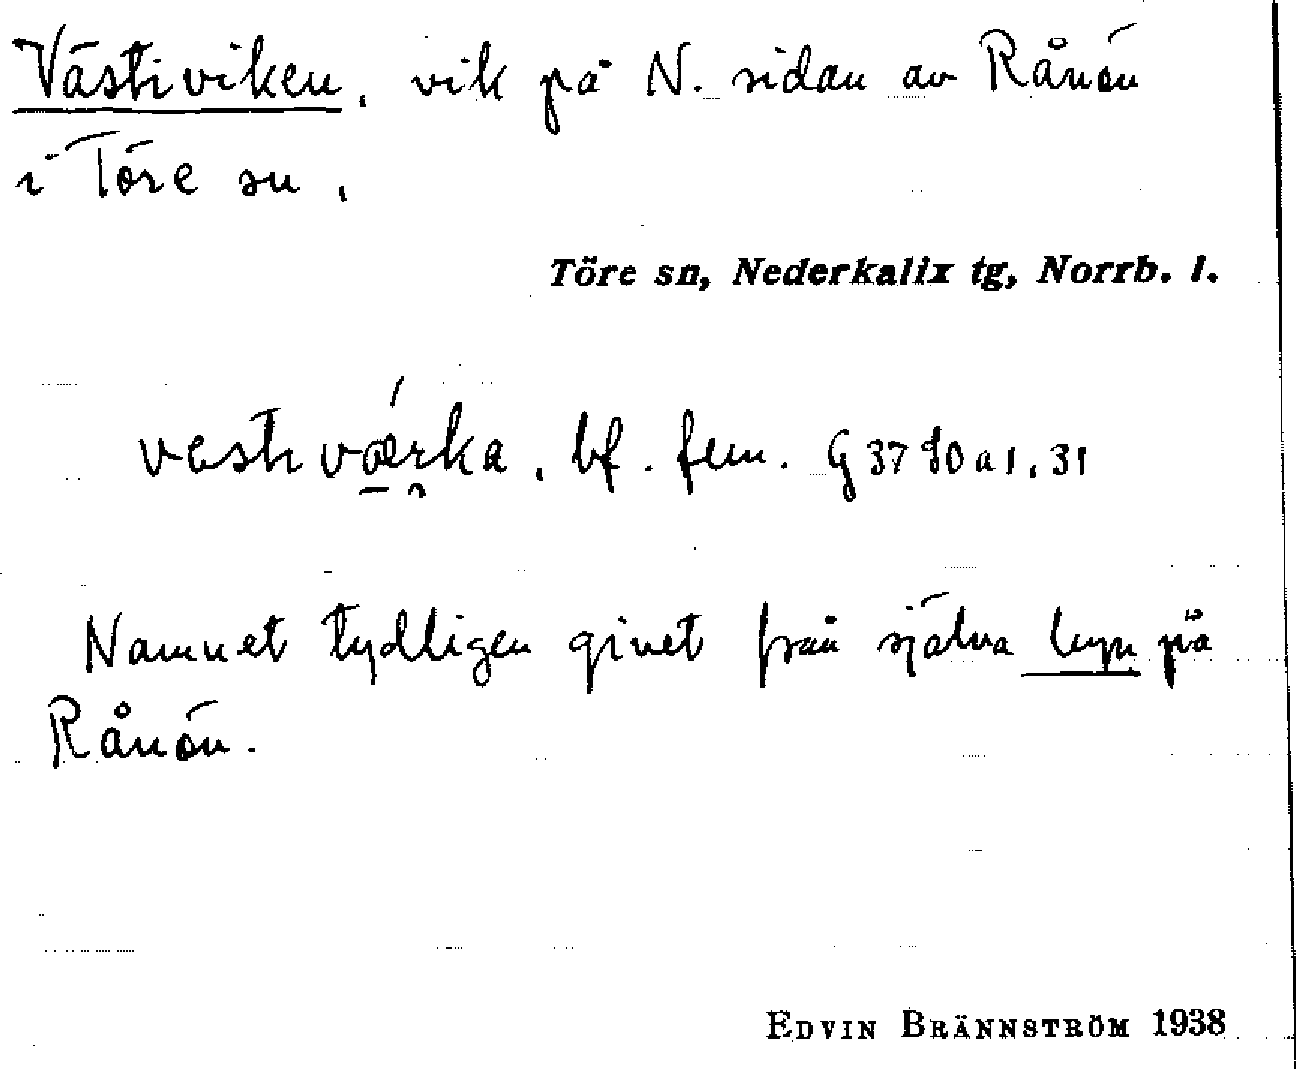 Västiviken, vik på N. sidan av Rånön
i Töre sn.
Töre sn, Nederkalix tg, Norrb. l.
bf. fem. G 37 10 a 1, 31
Namnet tydligen givet från själva byn på
Rånön.
EDVIN BRÄNNSTRÖM 1938